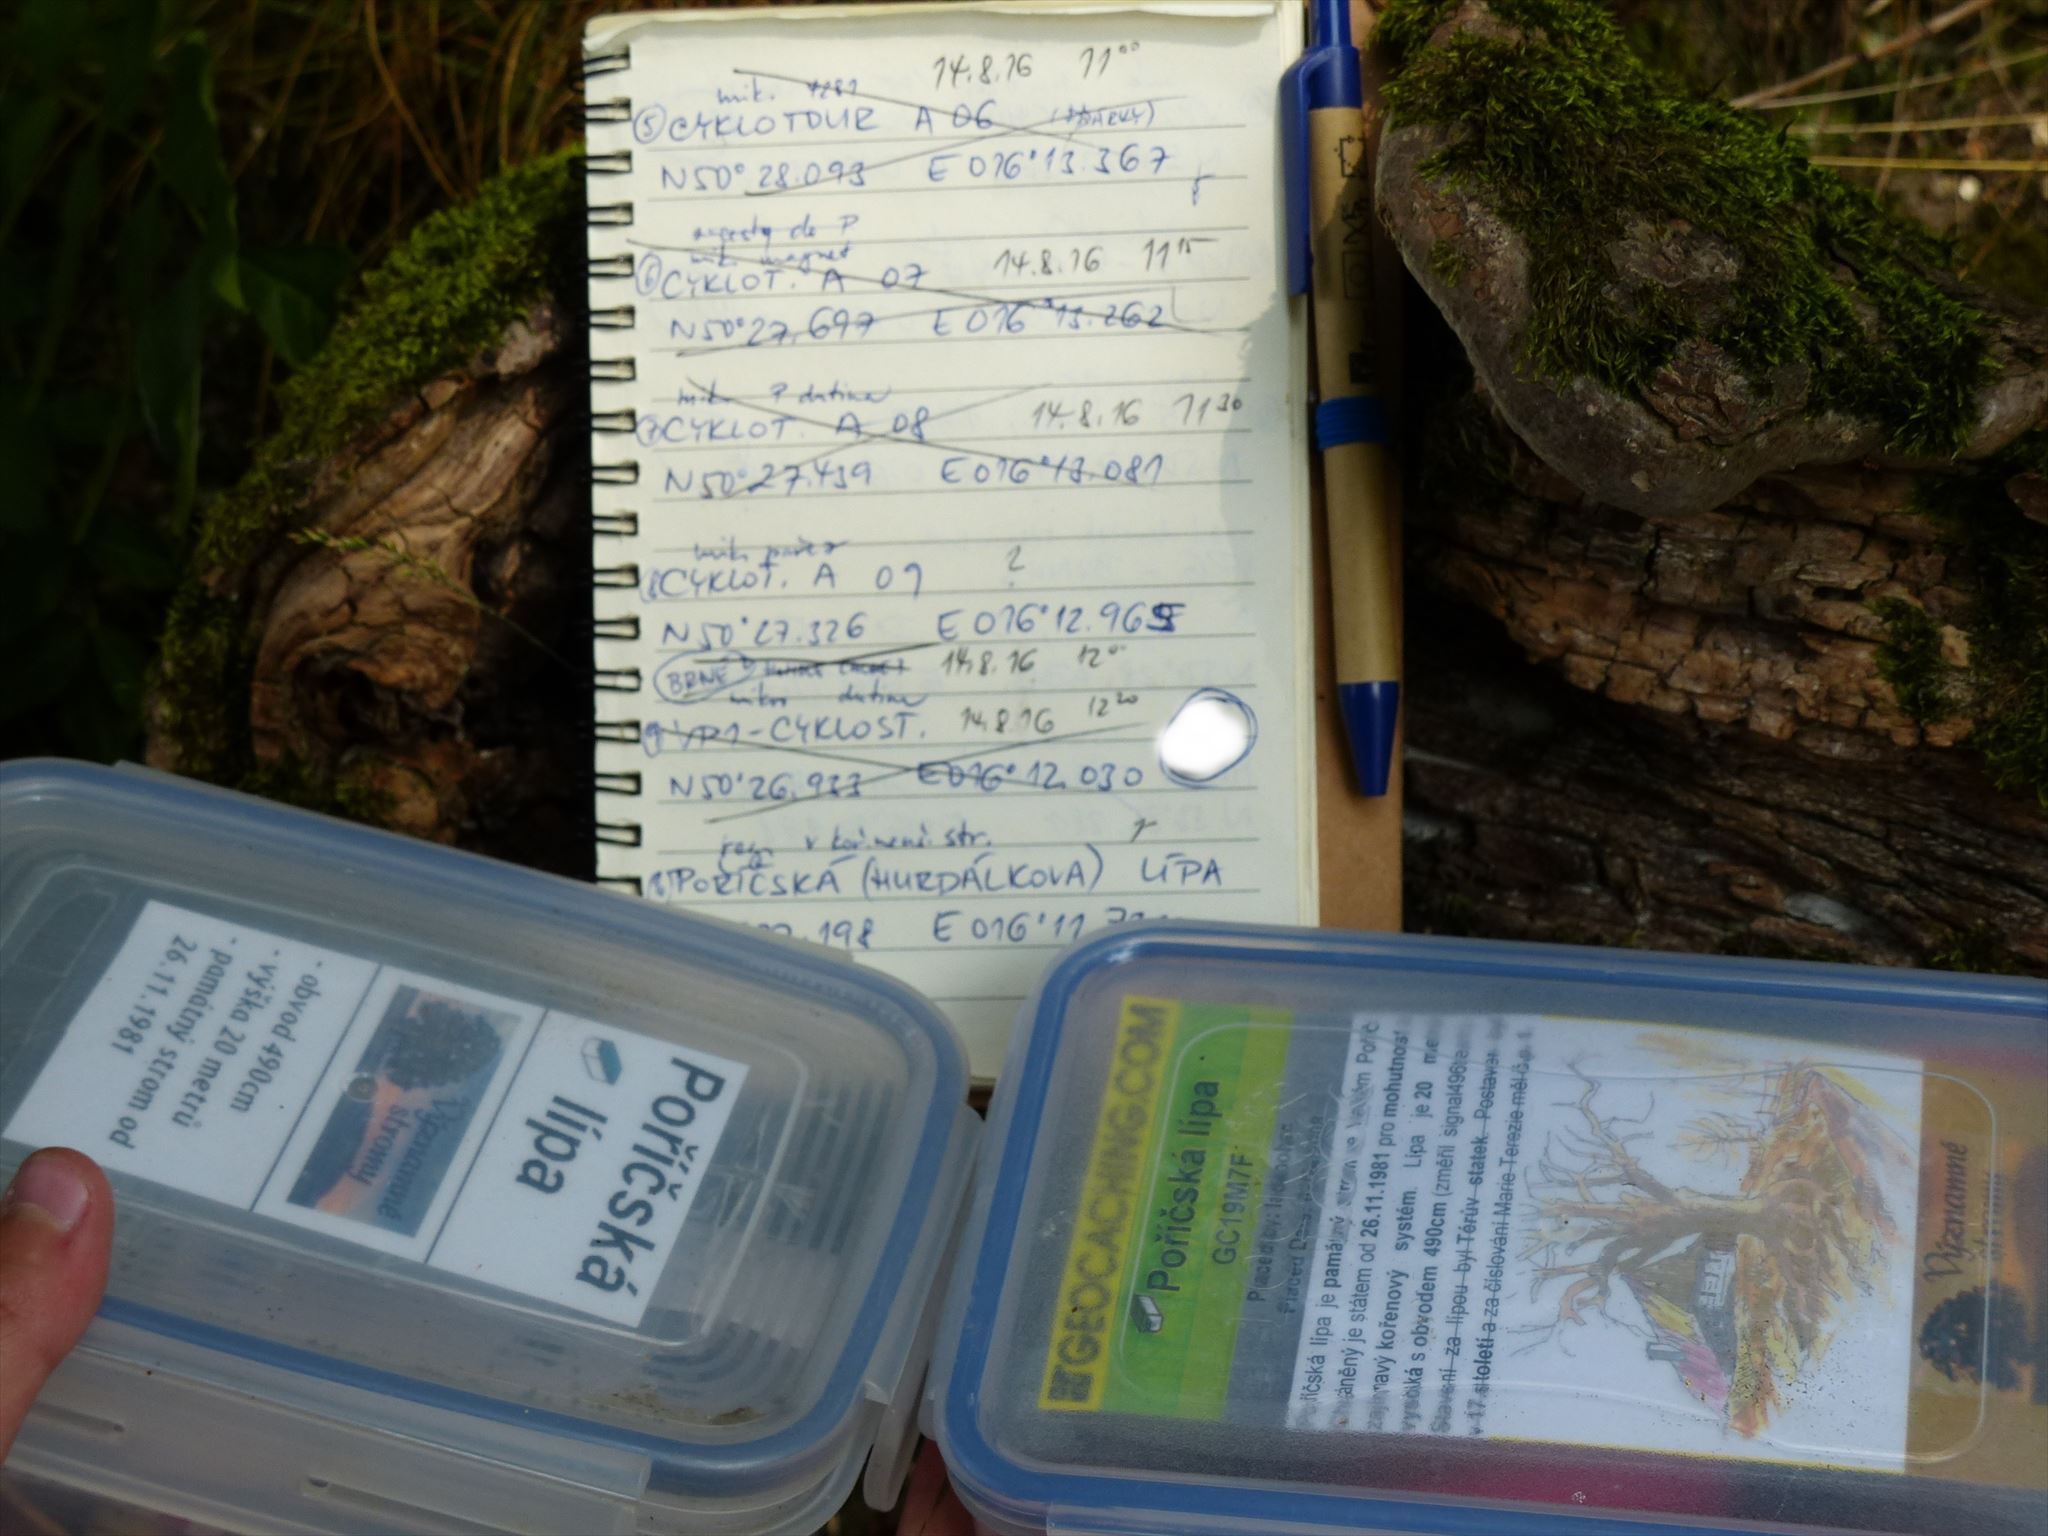 14.8.16 11⁰⁰
mik.
⑤ CYKLOTOUR A 06
N50°28.093 E 016°13.367
do P
mik. magnet
⑥ CYKLOT. A 07 14.8.16 11¹⁵
N50°27.697 E 016°13.262
mik. P dutina
⑦ CYKLOT. A 08 14.8.16 11³⁰
N50°27.439 E016°13.081
mik. pařez
CYKLOT. A 09 ?
N50°27.326 E 016°12.965
BRNĚ 14.8.16 12⁰⁰
mikro dutina
VP1-CYKLOST. 14.8.16 12²⁰
N50°26.933 E016°12.030
v str.
POŘÍČSKÁ (HURDÁLKOVA) LÍPA
.198 E 016°11.
Poříčská
lípa
Významné
stromy
• obvod 490cm
• výška 20 metrů
památný strom od
26.11.1981
GEOCACHING.COM
Poříčská lípa
GC19M7F
Placed by:
Placed
lípa je památný
je státem od 26.11.1981 pro mohutnost
kořenový systém. Lípa je 20
vysoká s obvodem 490cm (změřil
Stavení za lípou byl Térův statek. Postaven
v 17. století a za číslování Marie Terezie měl č.p. 1.
Významné